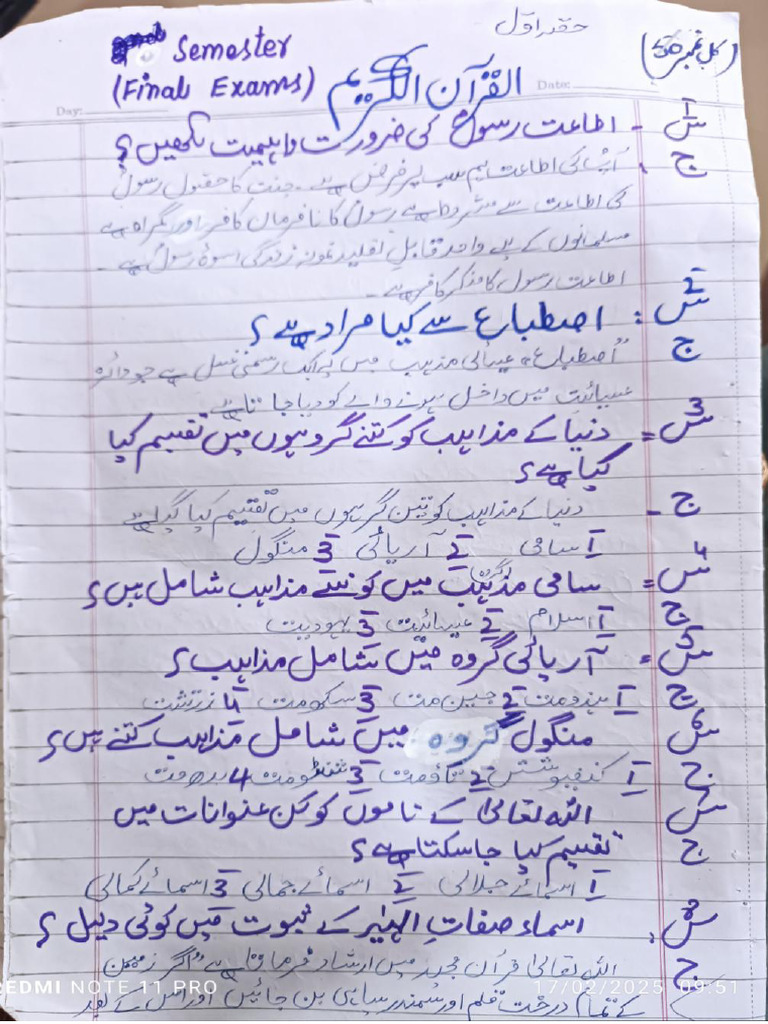 حصہ اول
Semester
(کل نمبر 50)
(Final Exams)
القرآن الکریم
Day:
Date:
س1- اطاعت رسولؐ کی ضرورت و اہمیت لکھیں؟
ج۔ آپؐ کی اطاعت ہم سب پر فرض ہے۔ جنت کا حصول رسولؐ
کی اطاعت سے مشروط ہے رسولؐ کا نافرمان کافر اور گمراہ ہے
مسلمانوں کے لیے واحد قابلِ تقلید نمونہ زندگی اسوۂ رسولؐ ہے۔
اطاعت رسول کا منکر کافر ہے۔
س2: اصطباع سے کیا مراد ہے؟
ج "اصطباع" عیسائی مذہب میں ایک رسمی غسل ہے جو دائرہ
عیسائیت میں داخل ہونے والے کو دیا جاتا ہے۔
س3= دنیا کے مذاہب کو کتنے گروہوں میں تقسیم کیا
گیا ہے؟
ج- دنیا کے مذاہب کو تین گروہوں میں تقسیم کیا گیا ہے
1 سامی 2 آریائی 3 منگول
س4= سامی مذہب میں کونسے مذاہب شامل ہیں؟
ج 1 اسلام 2 عیسائیت 3 یہودیت
س5= آریائی گروہ میں شامل مذاہب؟
ج 1 ہندومت 2 جین مت 3 سکھ مت 4 زرتشت
س6 منگول گروہ میں شامل مذاہب کتنے ہیں؟
ج 1 کنفیوشس 2 تاؤمت 3 شنٹومت 4 بدھ مت
س7 اللہ تعالیٰ کے ناموں کو کن عنوانات میں
تقسیم کیا جاسکتا ہے؟
ج 1 اسمائے جلالی 2 اسمائے جمالی 3 اسمائے کمالی
س8. اسماء صفاتِ الٰہیہ کے ثبوت میں کوئی دلیل؟
ج اللہ تعالیٰ قرآن مجید میں ارشاد فرماتا ہے "اگر زمین
کے تمام درخت قلم اور سمندر سیاہی بن جائیں اور اس کے بعد
REDMI NOTE 11 PRO
17/02/2025 09:51